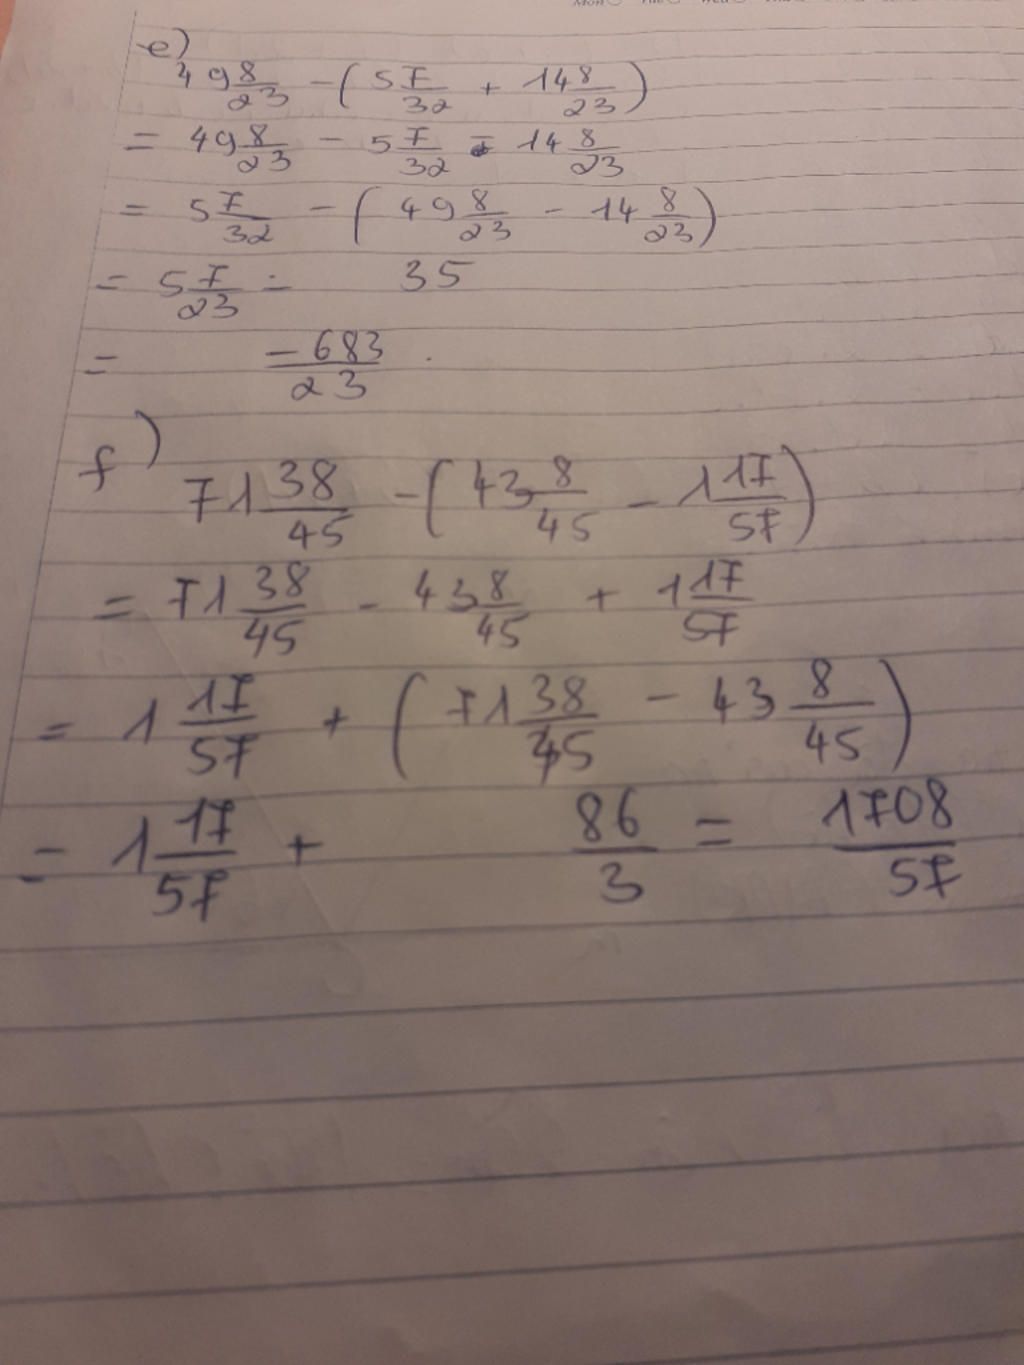 e)
49 8/23 - ( 5 7/32 + 14 8/23 )
= 49 8/23 - 5 7/32 - 14 8/23
= 5 7/32 - ( 49 8/23 - 14 8/23 )
= 5 7/23 - 35
= -683/23 .
f)
71 38/45 - ( 43 8/45 - 1 17/57 )
= 71 38/45 - 43 8/45 + 1 17/57
= 1 17/57 + ( 71 38/45 - 43 8/45 )
= 1 17/57 + 86/3 = 1708/57